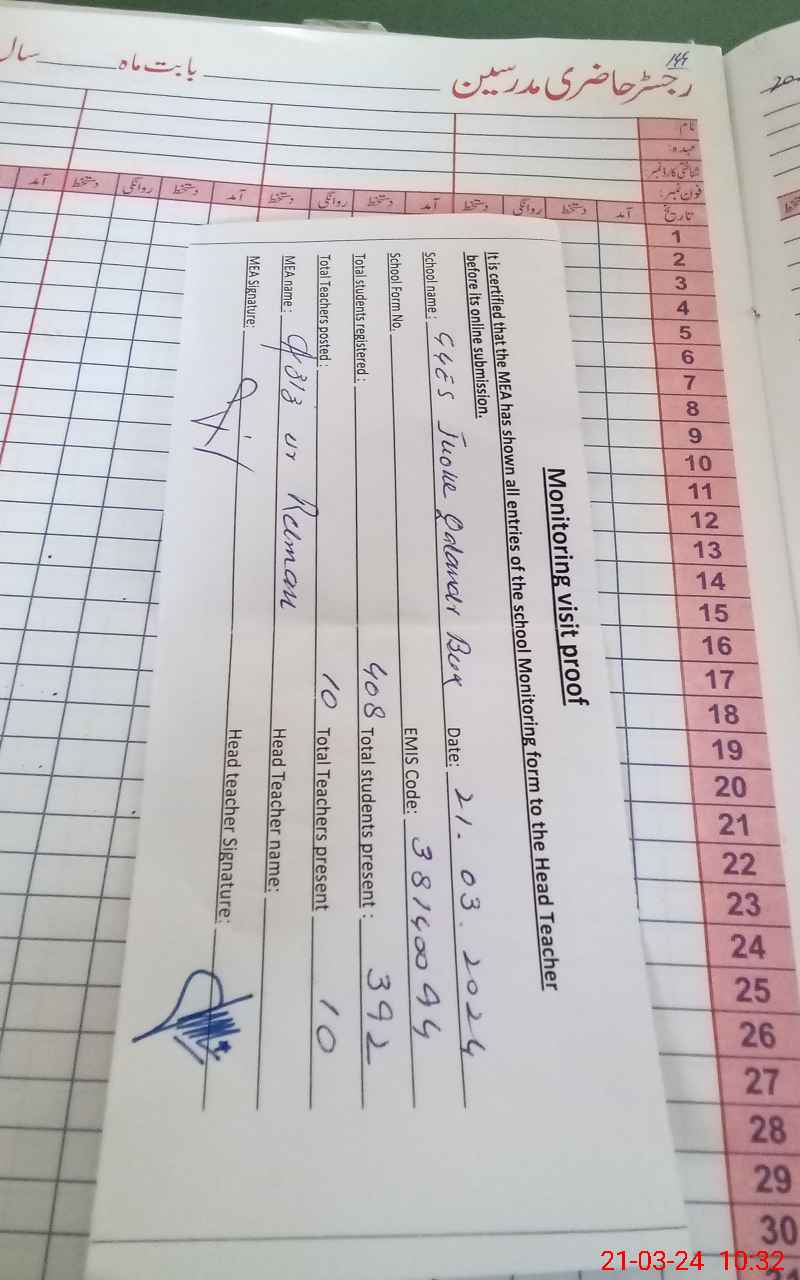 ۱۹۹
رجسٹر حاضری مدرسین بابت ماہ سال
نام:
عہدہ:
شناختی کارڈ نمبر:
فون نمبر:
تاریخ آمد دستخط روانگی دستخط آمد دستخط روانگی دستخط آمد دستخط روانگی دستخط آمد
1
2
3
4
5
6
7
8
9
10
11
12
13
14
15
16
17
18
19
20
21
22
23
24
25
26
27
28
29
30
Monitoring visit proof
It is certified that the MEA has shown all entries of the school Monitoring form to the Head Teacher
before its online submission.
School name: GGES Date: 21.03.2024
School Form No. EMIS Code: 38140094
Total students registered: 408 Total students present: 392
Total Teachers posted: 10 Total Teachers present 10
MEA name: ur Rehman Head Teacher name:
MEA Signature: Head teacher Signature:
21-03-24 10:32